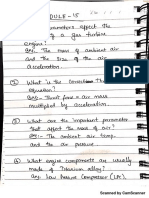 MODULE - 15
parameters affect the
of a gas turbine
engine?
Ans: The mass of ambient air
and the size of the air
acceleration.
② What is the
Ans:- Thrust = air mass
multiplied by acceleration.
③ What are the important parameter
that affect the mass of air?
Ans:- The ambient air temp
and the air pressure
④ What engine components are usually
made of Titanium alloy?
Ans:- Low Pressure Compressor (LPC).
Scanned by CamScanner